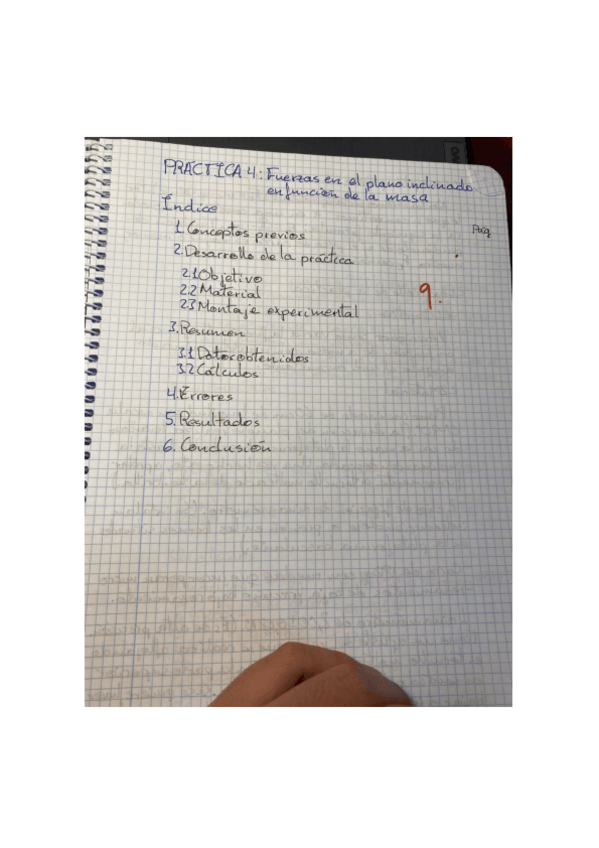 PRÁCTICA 4: Fuerzas en el plano inclinado
en función de la masa
Índice
Pág
1. Conceptos previos
2. Desarrollo de la práctica
2.1 Objetivo
2.2 Material
2.3 Montaje experimental
9.
3. Resumen
3.1 Datos obtenidos
3.2 Cálculos
4. Errores
5. Resultados
6. Conclusión